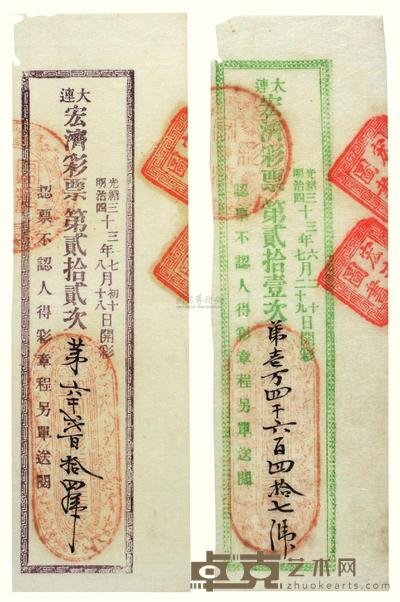 大連
宏濟彩票第貳拾貳次
光緒三十三年七月初十日開彩
明治四十年八月十八日開彩
認票不認人得彩章程另單送閱
第六千貳百拾四號
大連
宏濟彩票第貳拾壹次
光緒三十三年六月二十日開彩
明治四十年七月二十九日開彩
認票不認人得彩章程另單送閱
第壹万四千六百四拾七號
卓克艺术网
zhuokearts.com